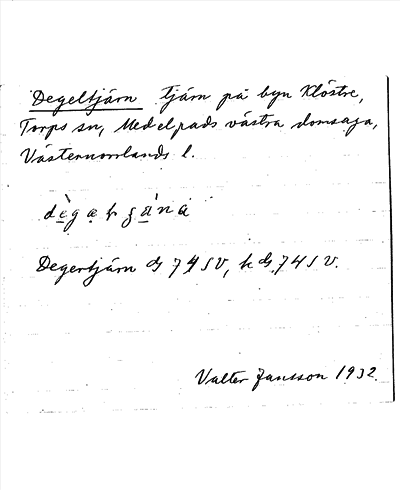 Degeltjärn tjärn på byn Klöstre,
Torps sn, Medelpads västra domsaga,
Västernorrlands l.
Degertjärn 74 SV, 74 SV.
Valter Jansson 1932